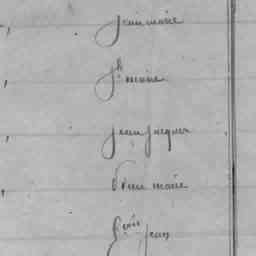 jean marie
jh marie
jean jacques
marie
jean